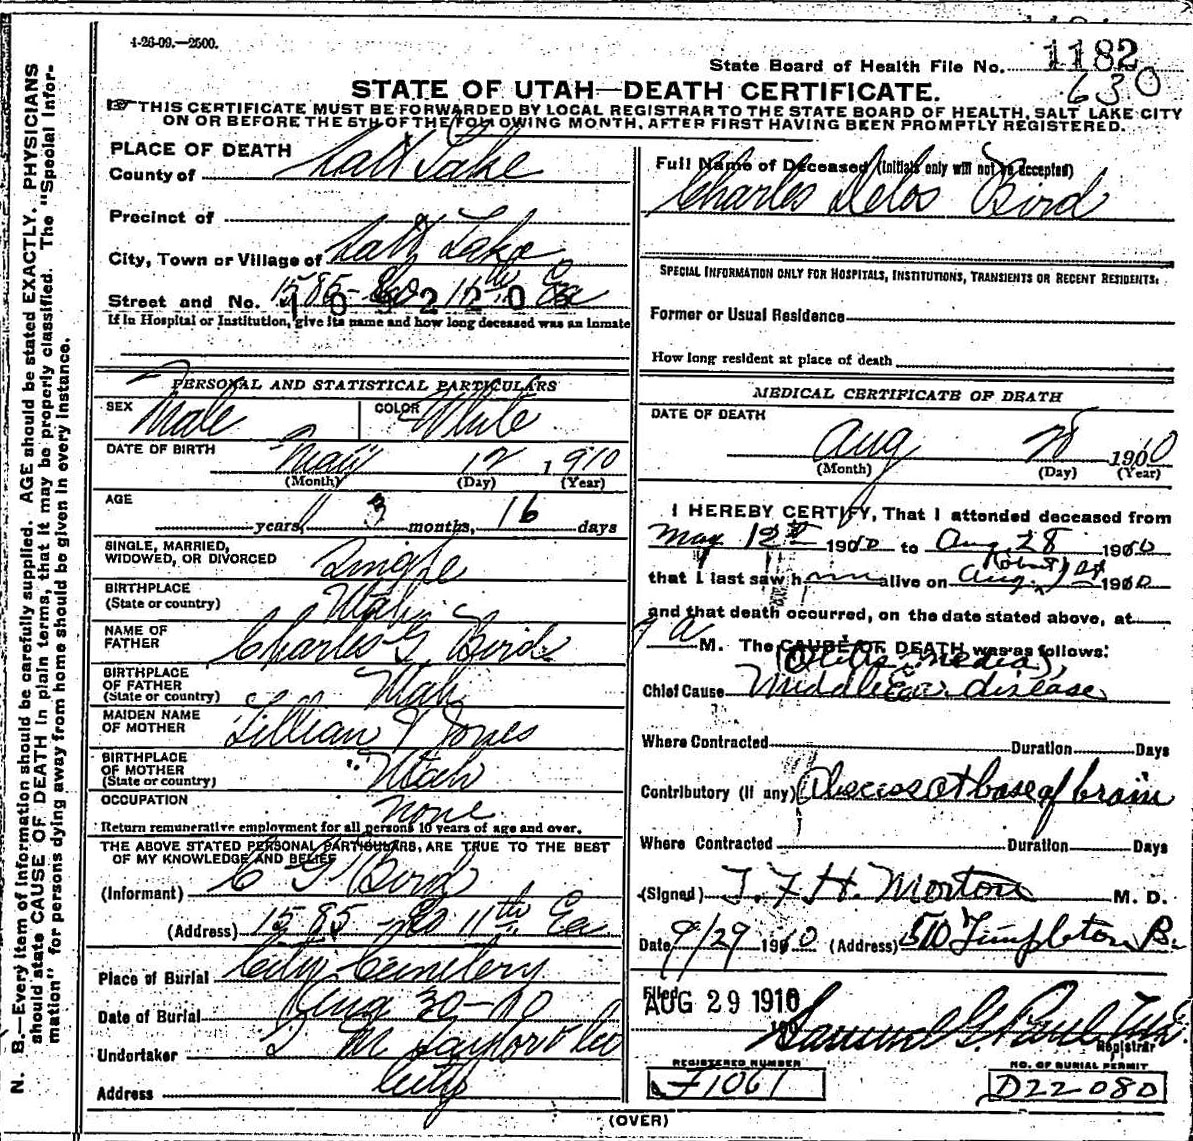 4-26-09.—2500.
State Board of Health File No. 1182
630
STATE OF UTAH—DEATH CERTIFICATE.
THIS CERTIFICATE MUST BE FORWARDED BY LOCAL REGISTRAR TO THE STATE BOARD OF HEALTH, SALT LAKE CITY
ON OR BEFORE THE 5TH OF THE FOLLOWING MONTH, AFTER FIRST HAVING BEEN PROMPTLY REGISTERED.
N. B.—Every item of information should be carefully supplied. AGE should be stated EXACTLY. PHYSICIANS
should state CAUSE OF DEATH in plain terms, that it may be properly classified. The "Special Infor-
mation" for persons dying away from home should be given in every instance.
PLACE OF DEATH
County of Salt Lake
Precinct of
City, Town or Village of Salt Lake
Street and No. 1585 So 11th Ea
109220
If in Hospital or Institution, give its name and how long deceased was an inmate
PERSONAL AND STATISTICAL PARTICULARS
SEX Male COLOR White
DATE OF BIRTH May 12 1910
(Month) (Day) (Year)
AGE years, 3 months, 16 days
SINGLE, MARRIED,
WIDOWED, OR DIVORCED Single
BIRTHPLACE
(State or country) Utah
NAME OF
FATHER Charles G. Bird
BIRTHPLACE
OF FATHER
(State or country) Utah
MAIDEN NAME
OF MOTHER Lillian J Jones
BIRTHPLACE
OF MOTHER
(State or country) Utah
OCCUPATION none
Return remunerative employment for all persons 10 years of age and over.
THE ABOVE STATED PERSONAL PARTICULARS, ARE TRUE TO THE BEST
OF MY KNOWLEDGE AND BELIEF
(Informant) C G Bird
(Address) 1585 So 11th Ea
Place of Burial City Cemetery
Date of Burial Aug 30-10
Undertaker S M Taylor & Co
Address City
Full Name of Deceased (initials only will not be accepted)
Charles Delos Bird
SPECIAL INFORMATION ONLY FOR HOSPITALS, INSTITUTIONS, TRANSIENTS OR RECENT RESIDENTS:
Former or Usual Residence
How long resident at place of death
MEDICAL CERTIFICATE OF DEATH
DATE OF DEATH
Aug 28 1910
(Month) (Day) (Year)
I HEREBY CERTIFY, That I attended deceased from
May 12th 1910 to Aug. 28 1910
that I last saw him alive on Aug. 1910
and that death occurred, on the date stated above, at
7 a M. The CAUSE OF DEATH was as follows:
(Otitis media),
Chief Cause Middle Ear disease
Where Contracted Duration Days
Contributory (if any) Abscess at base of brain
Where Contracted Duration Days
(Signed) T. F. H. Morton M. D.
Date 9/29 1910 (Address) 510 Templeton B.
Filed
AUG 29 1910
190
Samuel G. Paul M.D.
Registrar
REGISTERED NUMBER
F1061
NO. OF BURIAL PERMIT
D22080
(OVER)